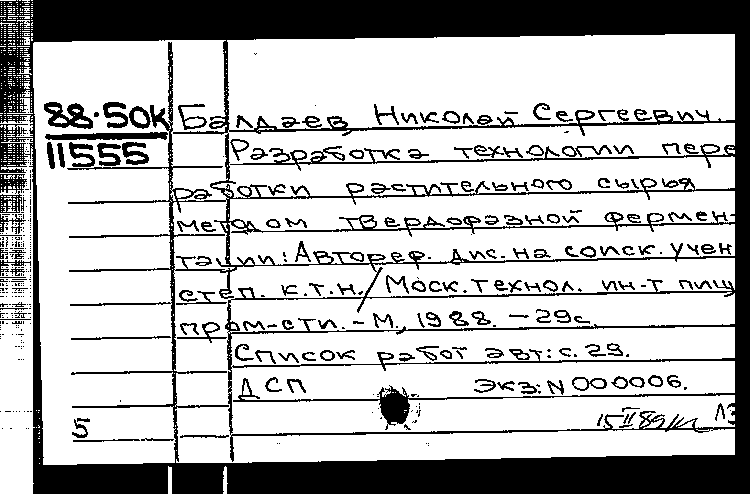 88-50К Балдаев, Николай Сергеевич.
11555 Разработка технологии пере
работки растительного сырья
методом твердофазной фермен-
тации: Автореф. дис. на соиск. учен
степ. к.т.н. / Моск. технол. ин-т пищ
пром-сти. - М., 1988. - 29с.
Список работ авт: с. 29.
ДСП Экз: N 000006.
5